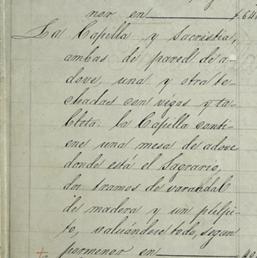 nor en $64
La Capilla y Sacristia,
ambas de pared de a-
dove, una y otra te-
chadas con vigas y ta-
bleta. La Capilla conti-
ene una mesa de adove
donde está el Sagrario,
dos tramos de varandal
de madera y un púlpi-
to, valuándose todo, segun
pormenor en